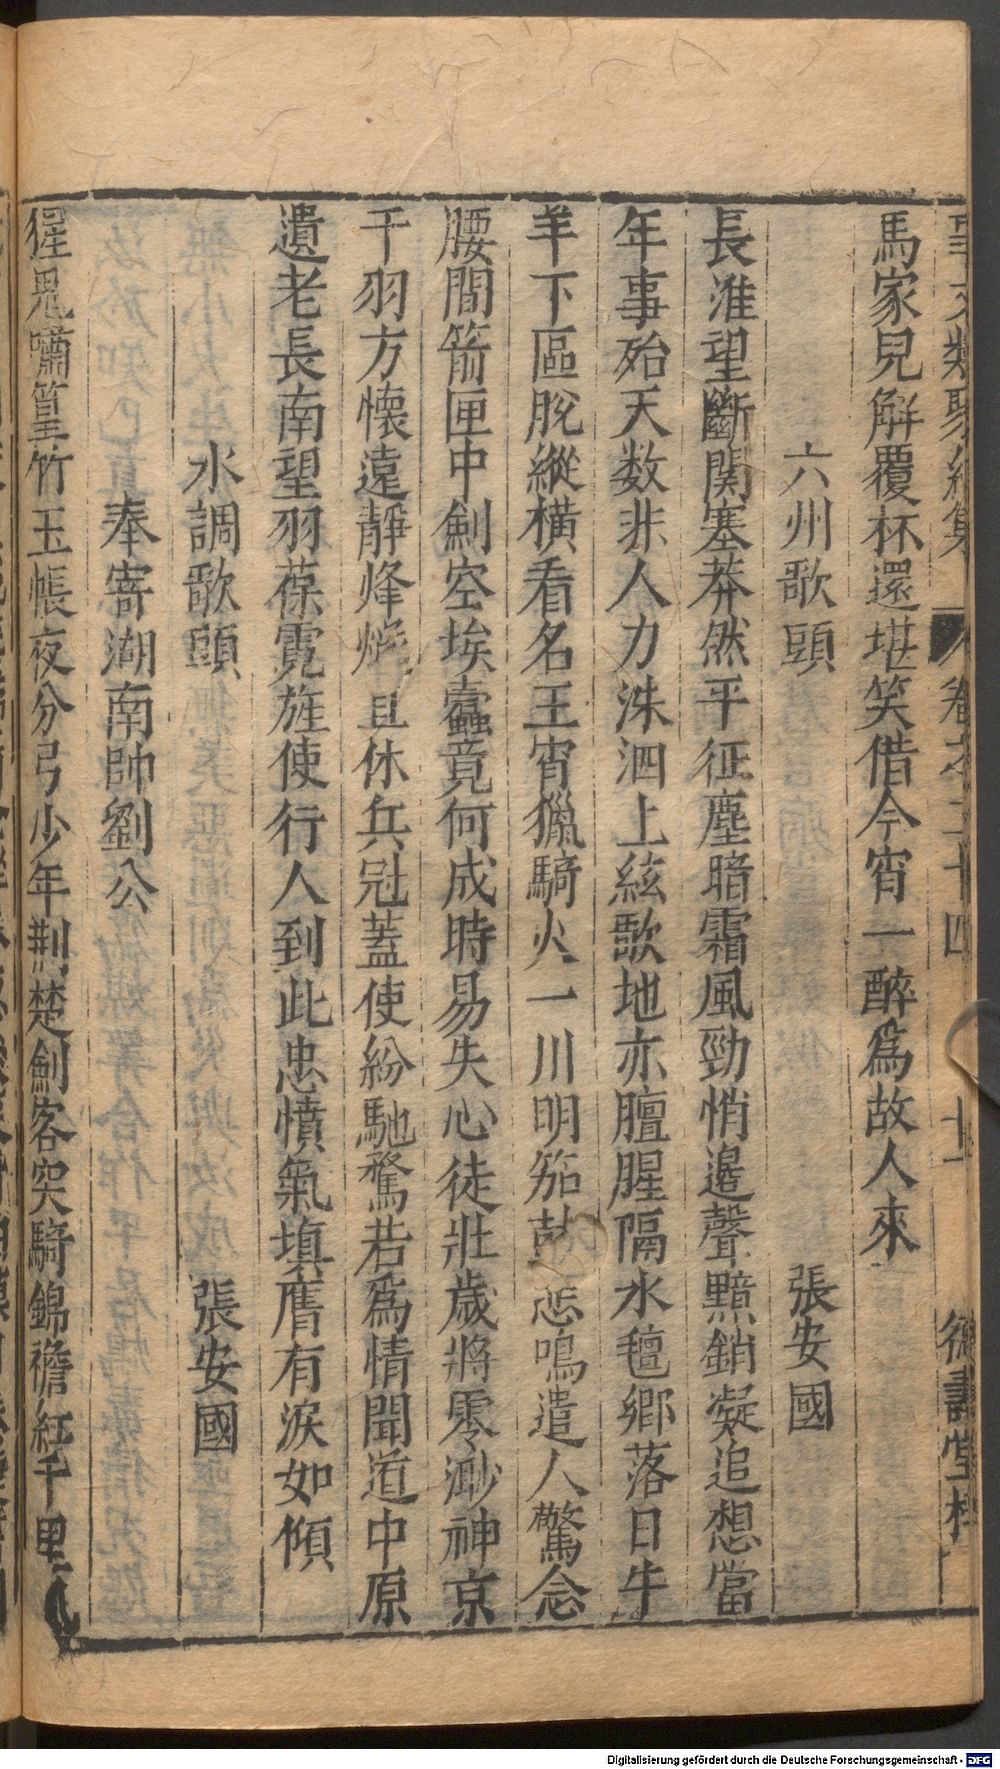 事文類聚續集 卷之二十四 十一 德壽堂梓
馬家兒解覆杯還堪笑借今宵一醉爲故人來
六州歌頭 張安國
長淮望斷關塞莽然平征塵暗霜風勁悄邊聲黯銷凝追想當
年事殆天数非人力洙泗上絃歌地亦膻腥隔水氊鄉落日牛
羊下區脫縱橫看名王宵獵騎火一川明笳鼓悲鳴遣人驚念
腰間箭匣中劍空埃蠹竟何成時易失心徒壯歲將零渺神京
干羽方懷遠靜烽燧且休兵冠蓋使紛馳騖若爲情聞道中原
遺老長南望羽葆霓旌使行人到此忠憤氣填膺有淚如傾
水調歌頭 張安國
奉寄湖南帥劉公
猩鬼嘯篁竹玉帳夜分弓少年荆楚劍客突騎錦襜紅千里風
Digitalisierung gefördert durch die Deutsche Forschungsgemeinschaft - DFG